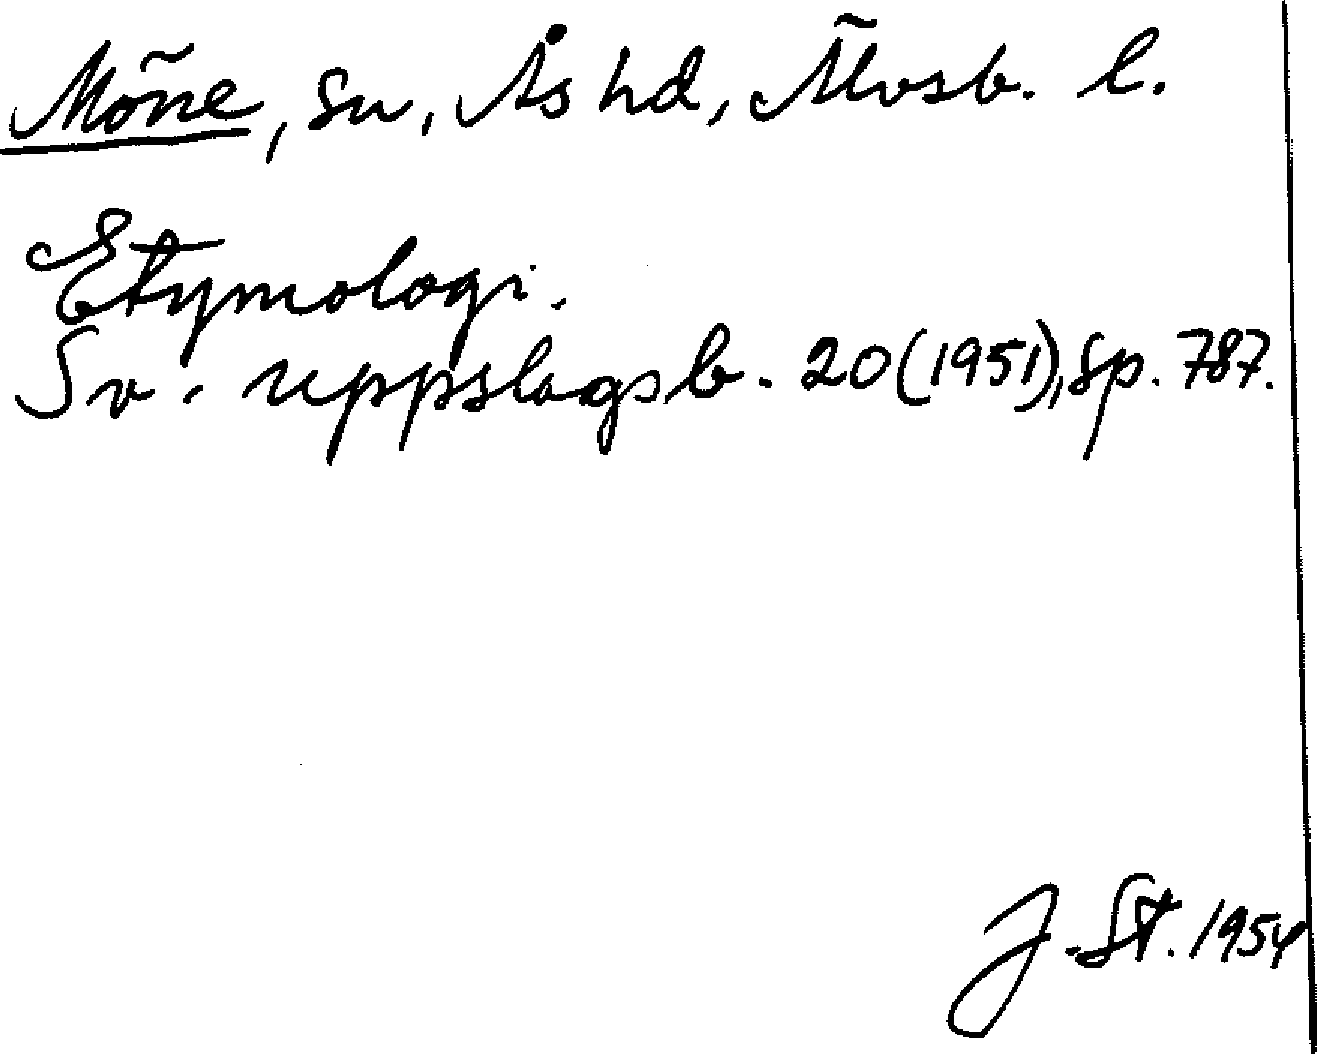 Möne, sn, Ås hd, Älvsb. l.
Etymologi.
Sv. uppslagsb. 20 (1951), sp. 787.
J. St. 1954